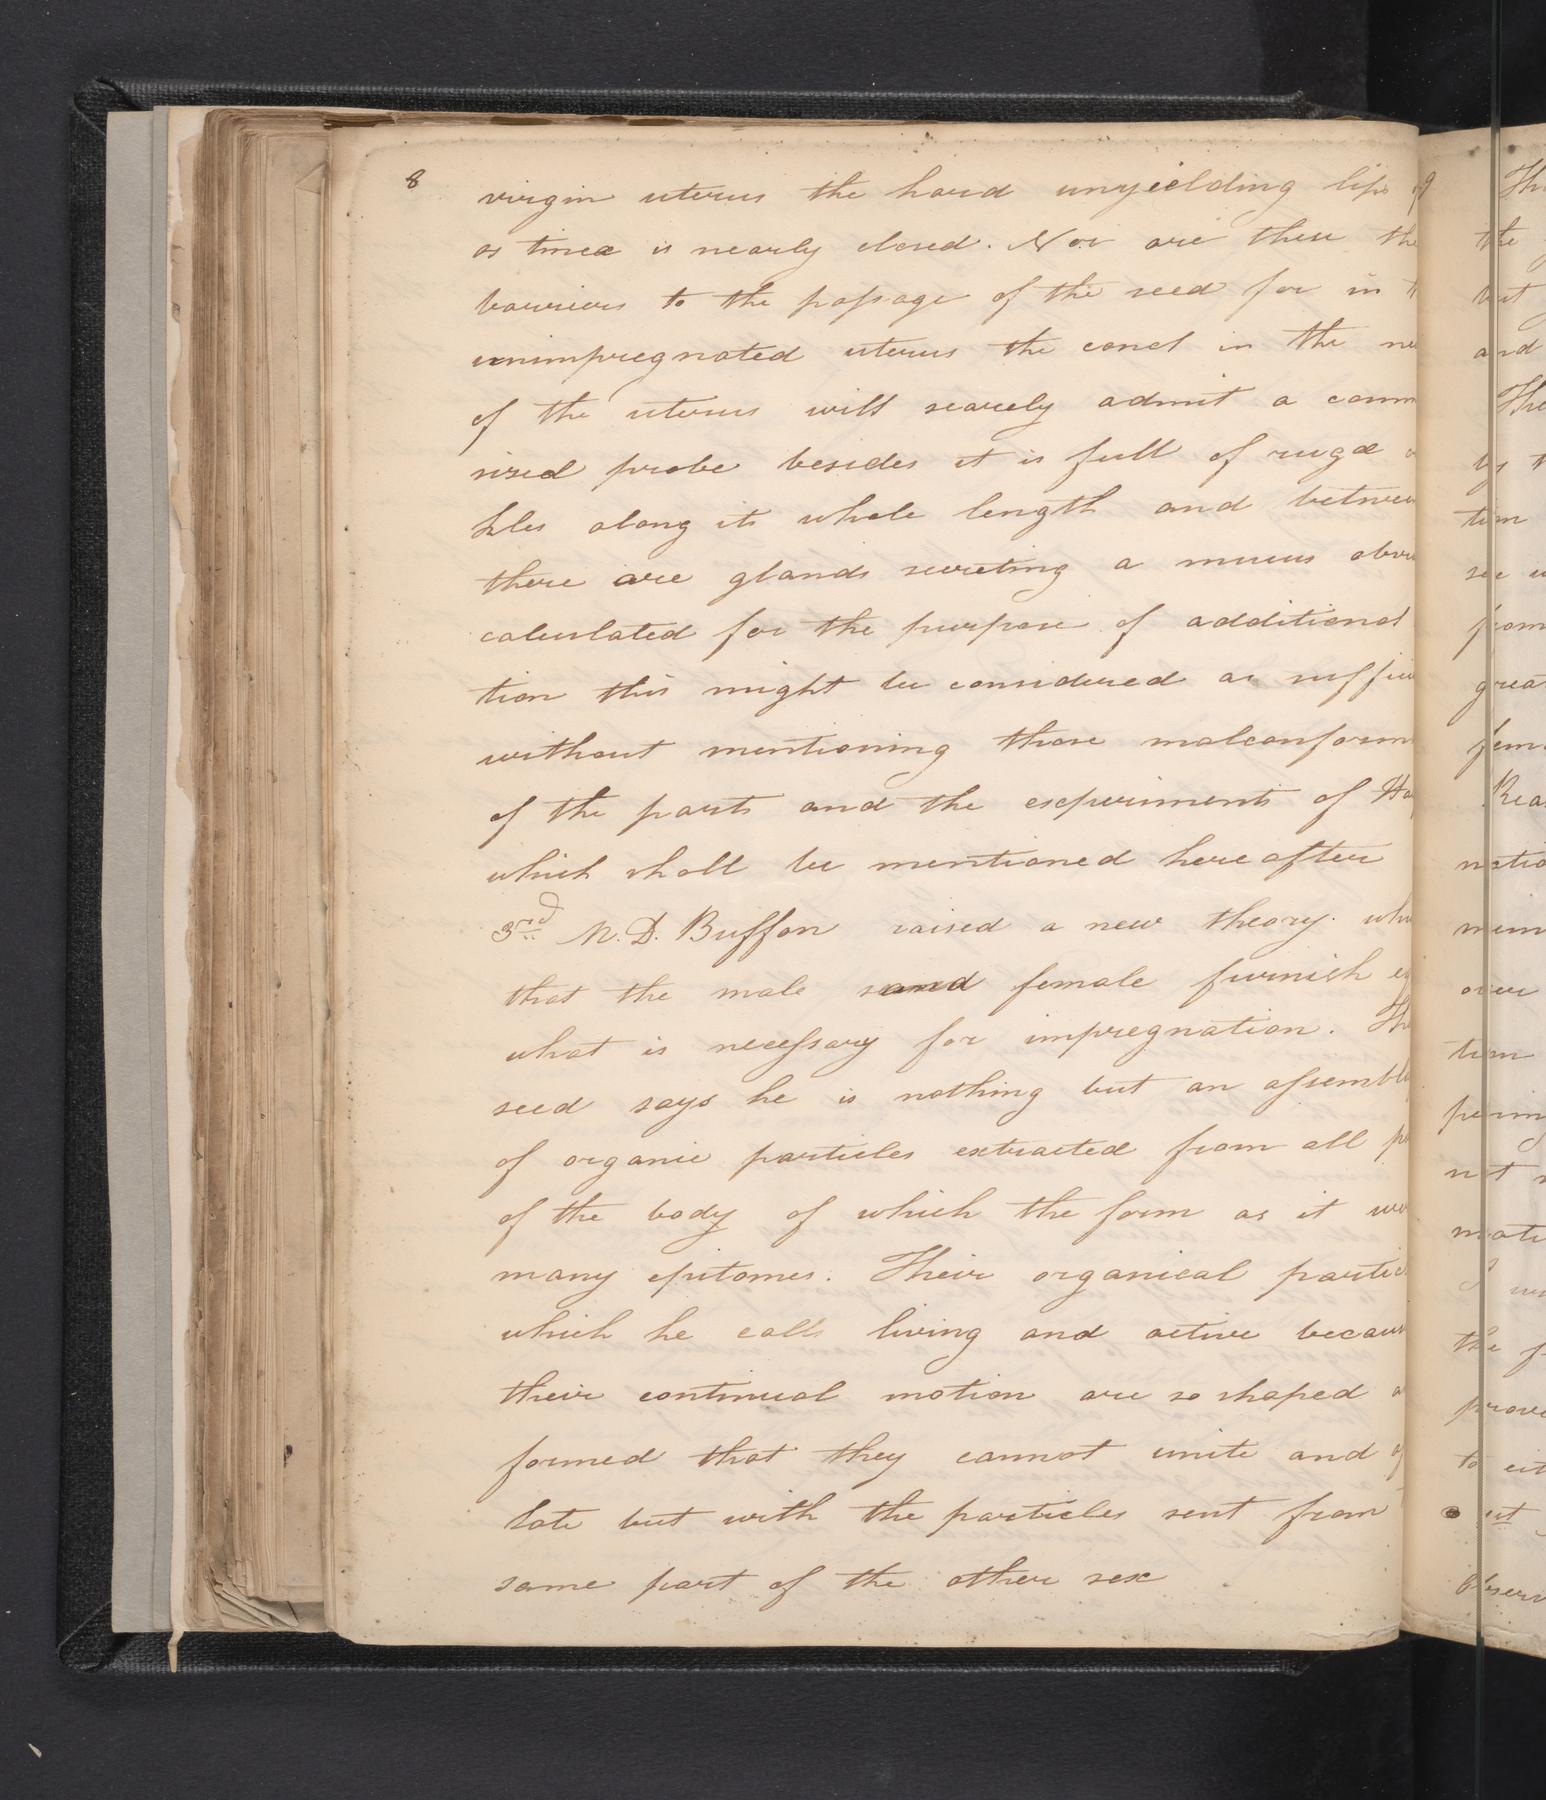 8
virgin uterus the hard unyielding lips of
os tincæ is nearly closed. Nor are these the
barriers to the passage of the seed for in th
unimpregnated uterus the canel in the ne
of the uterus will scarcely admit a comm
sized probe besides it is full of rugæ
kles along its whole length and between
there are glands secreting a mucus obvi
calculated for the purpose of additional
tion this might be considered as suffici
without mentioning those malconform
of the parts and the experiments of Ha
which shall be mentioned hereafter
3rd M. D. Buffon raised a new theory. whi
that the male and female furnish eq
what is necessary for impregnation. The
seed says he is nothing but an assembl
of organic particles extracted from all pa
of the body of which the form as it we
many epitomes. Their organical partic
which he calls living and active becaus
their continual motion are so shaped a
formed that they cannot unite and
late but with the particles sent from
same part of the other sex
9
Th
the
but
and
The
by
tion
see
from
grea
fem
Rea
natio
mem
over
tion
not
the
prove
to eit
observ